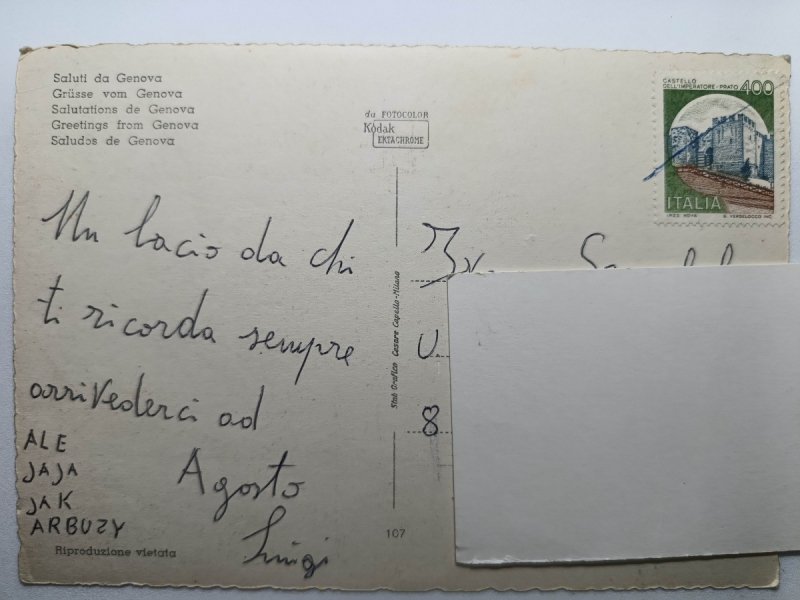 Saluti da Genova
Grüsse vom Genova
Salutations de Genova
Greetings from Genova
Saludos de Genova
da FOTOCOLOR
Kodak
EKTACHROME
CASTELLO
DELL'IMPERATORE - PRATO 400
ITALIA
Un bacio da chi
ti ricorda sempre
arrivederci ad
Agosto
Luigi
ALE
JAJA
JAK
ARBUZY
Riproduzione vietata
Stab Grafico Cesare Capello-Milano
107
U.
8